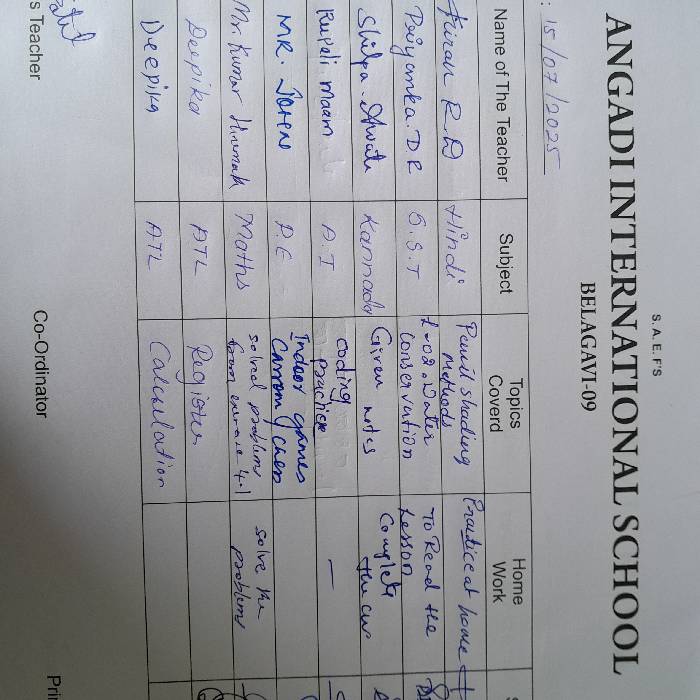 S. A. E. F'S
ANGADI INTERNATIONAL SCHOOL
BELAGAVI-09
: 15/07/2025
Name of The Teacher Subject Topics Coverd Home Work
Kiran R.D Hindi Pencil shading Methods Practice at home
Priyanka.D.R S.S.T L-08. Water conservation To Read the Lesson
Shilpa. Kannada Given notes Complete the cw
Rupali maam A.I coding practice —
MR. P.E Indoor games Carrom, chess
Mr. Kumar Maths solved problems from exercise 4.1 solve the problems
Deepika ATL Register
Deepika ATL Calculation
s Teacher Co-Ordinator Pri